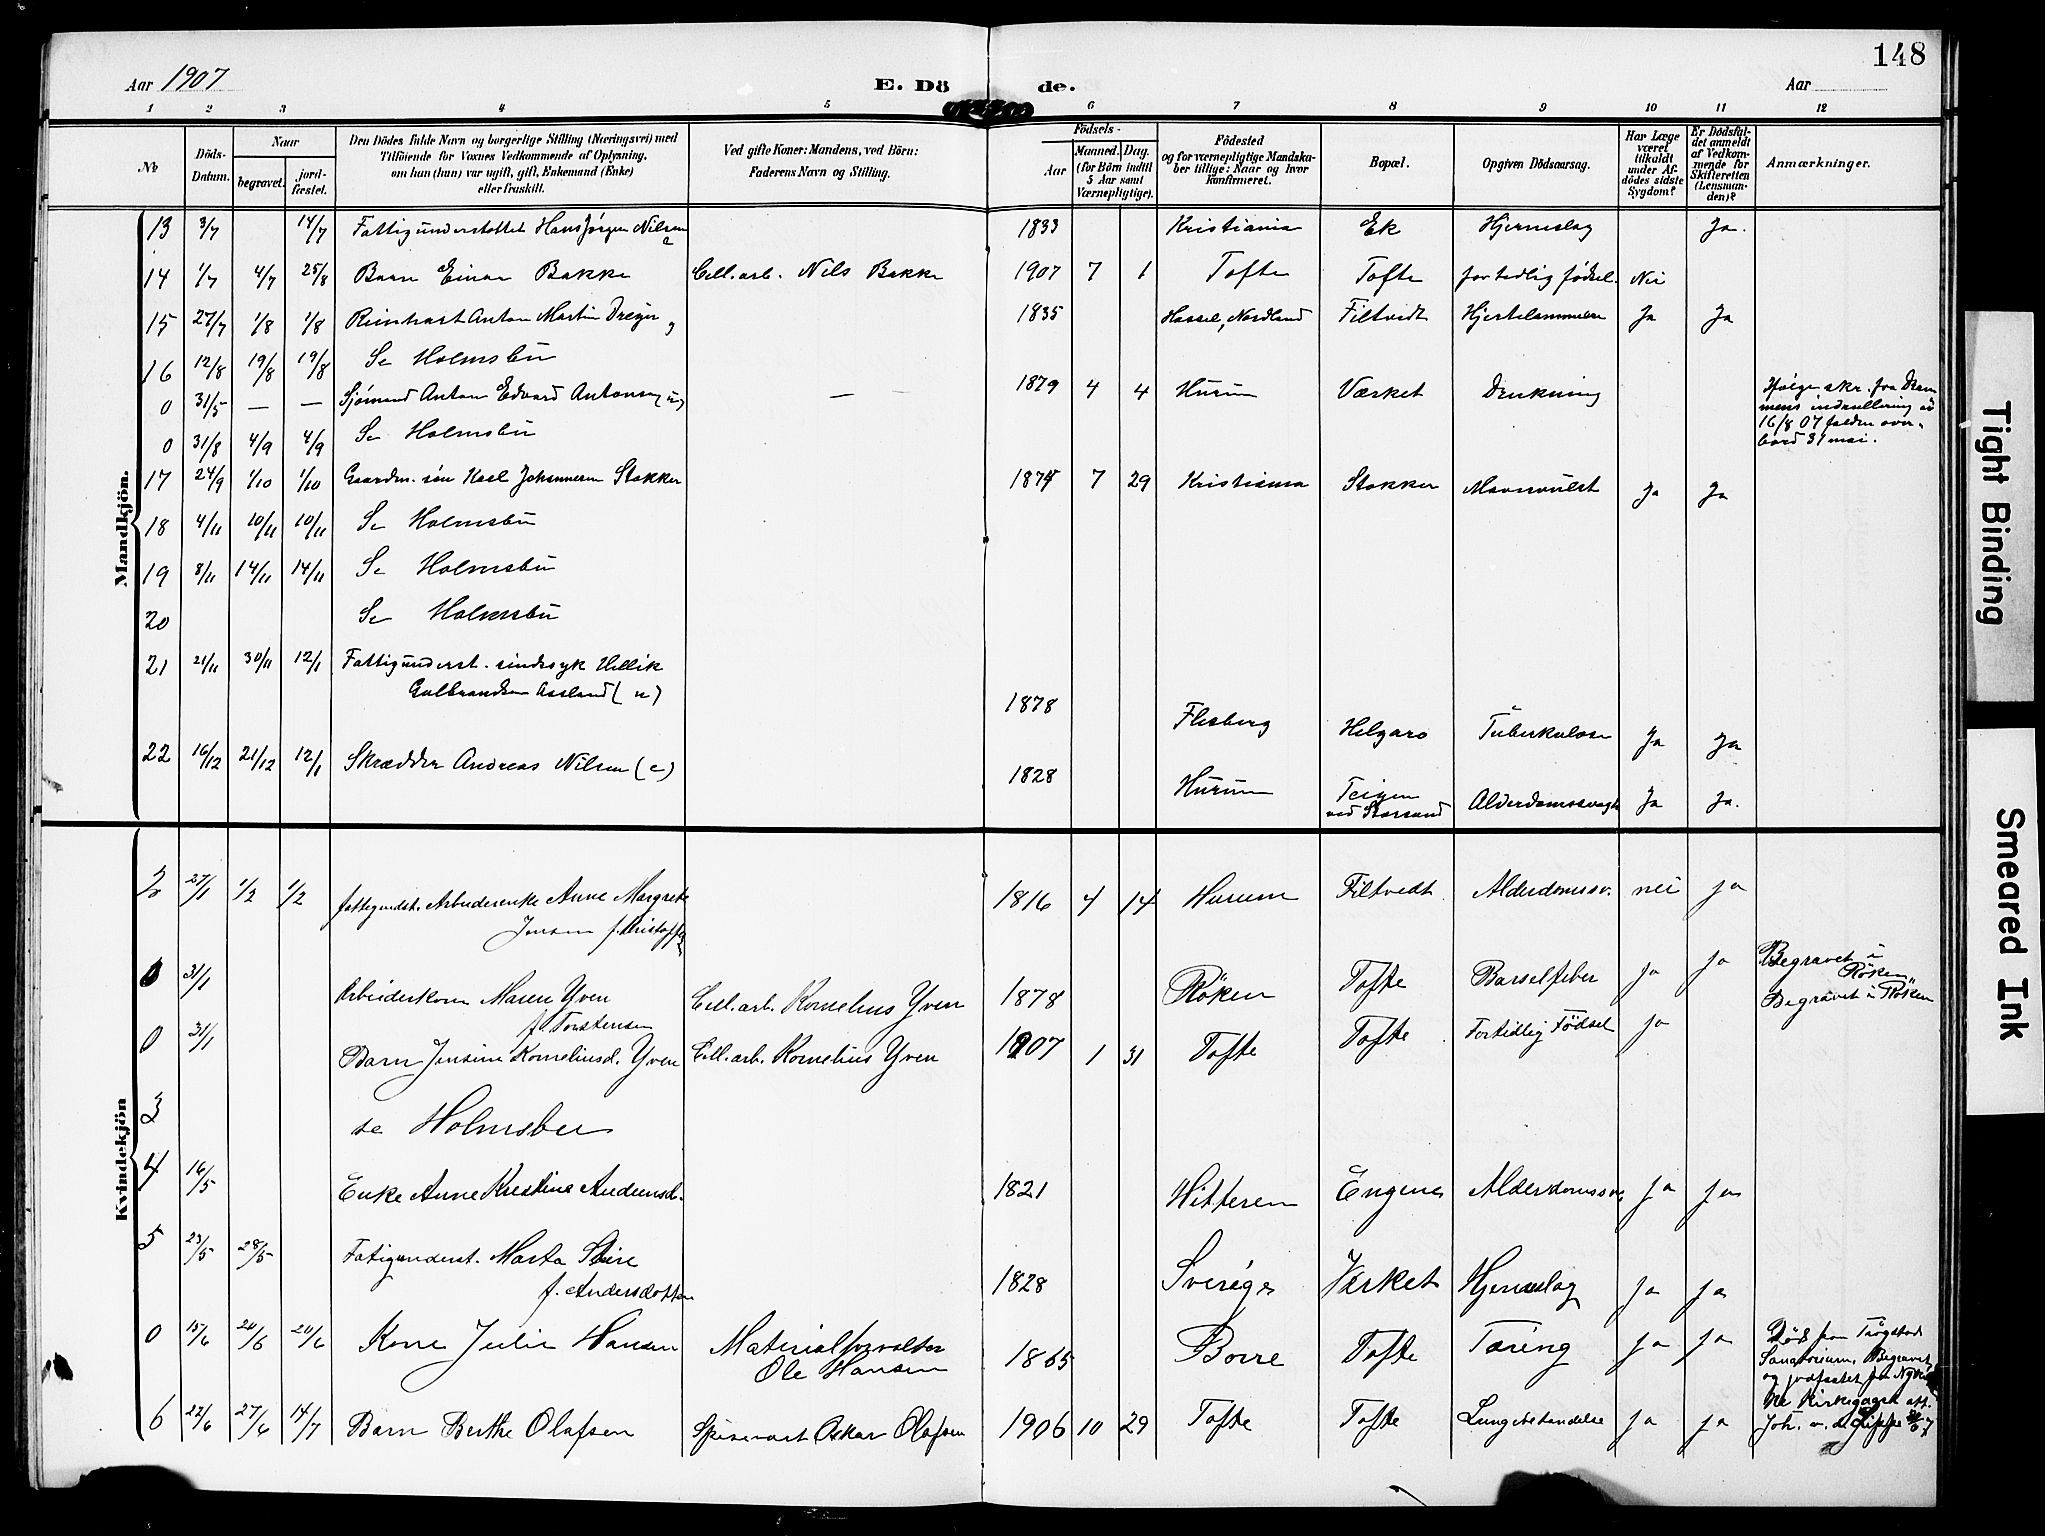 148
Aar 1907
E. Dö de.
Aar
1 2 3 4 5 6 7 8 9 10 11 12
No
Döds-Datum.
Naar
begravet.
jord-fæstet.
Den Dödes fulde Navn og borgerlige Stilling (Næringsvei) med
Tilföiende for Voxnes Vedkommende af Oplysning,
om han (hun) var ugift, gift, Enkemand (Enke)
eller fraskilt.
Ved gifte Koner: Mandens, ved Börn:
Faderens Navn og Stilling.
Födsels-
Aar
Maaned. Dag.
(for Börn indtil
5 Aar samt
Værnepligtige).
Födested
og for værnepligtige Mandska-
ber tillige: Naar og hvor
konfirmeret.
Bopæl.
Opgiven Dödsaarsag.
Har Læge
været
tilkaldt
under Af-
dödes sidste
Sygdom?
Er Dödsfal-
det anmeldt
af Vedkom-
mende for
Skifteretten
(Lensman-
den)?
Anmærkninger.
Mandkjön.
13 3/7 14/7 Fattigunderstøttet Hans Jørgen Nilsen 1833 Kristiania Ek Hjerneslag Ja.
14 1/7 4/7 25/8 Barn Einar Bakke Cell. arb. Nils Bakke 1907 7 1 Tofte Tofte for tidlig fødsel. Nei
15 27/7 1/8 1/8 Reinhart Anton Martin Dreyer g 1835 Hassel, Nordland Filtvedt Hjertelammelse Ja Ja
16 12/8 19/8 19/8 Se Holmsbu
0 31/5 — — Sjømand Anton Edvard Antonsen (u) — — 1879 4 4 Hurum Værket Drukning
Ifølge skr. fra Dram
mens indrullering av
16/8 07 falden over-
bord 31 mai.
0 31/8 4/9 4/9 Se Holmsbu
17 24/9 1/10 1/10 Gaardm. søn Karl Johannesen Stokker 1874 7 29 Kristiania Stokker Mavesvulst Ja Ja
18 4/11 10/11 10/11 Se Holmsbu
19 8/11 14/11 14/11 Se Holmsbu
20 Se Holmsbu
21 21/11 30/11 12/1 Fattigunderst. sindssyk Hellik
Gulbrandsen Aasland (u) 1878 Flesberg Helgaro Tuberkulose Ja Ja
22 16/12 21/12 12/1 Skrædder Andreas Nilsen (e) 1828 Hurum Teigen
ved Storsand Alderdomssvagh Ja Ja.
Kvindekjön
2 27/1 1/2 1/2 fattigundst. Arbeiderenke Anne Margrete
Jensen f. Kristoffe 1816 4 14 Hurum Filtvedt Alderdomssv. nei Ja
0 31/1 Arbeiderkone Maren Yven
f. Torstensen Cell. arb. Kornelius Yven 1878 Röken Tofte Barselfeber Ja Ja Begravet i
Röken
0 31/1 Barn Jensine Korneliusd. Yven Cell. arb. Kornelius Yven 1907 1 31 Tofte Tofte Fortidlig Födsel Ja Begravet i Röken
3 se Holmsbu
4 16/5 Enke Anne Kristine Andersd. 1821 Hitteren Engene Alderdomssv Ja Ja
5 23/5 28/5 Fatigunderst. Marta
f. Andersdotter 1828 Sverige Værket Hjerneslag Ja Ja
0 15/6 20/6 20/6 Kone Julie Hansen Materialforvalter
Ole Hansen 1865 Borre Tofte Tæring Ja Ja
Död paa
Sanatorium. Begravet
6 22/6 27/6 14/7 Barn Berthe Olafsen Spisevert Oskar Olafsen 1906 10 29 Tofte Tofte Lungebetændelse Ja Ja
Tight Binding
Smeared Ink